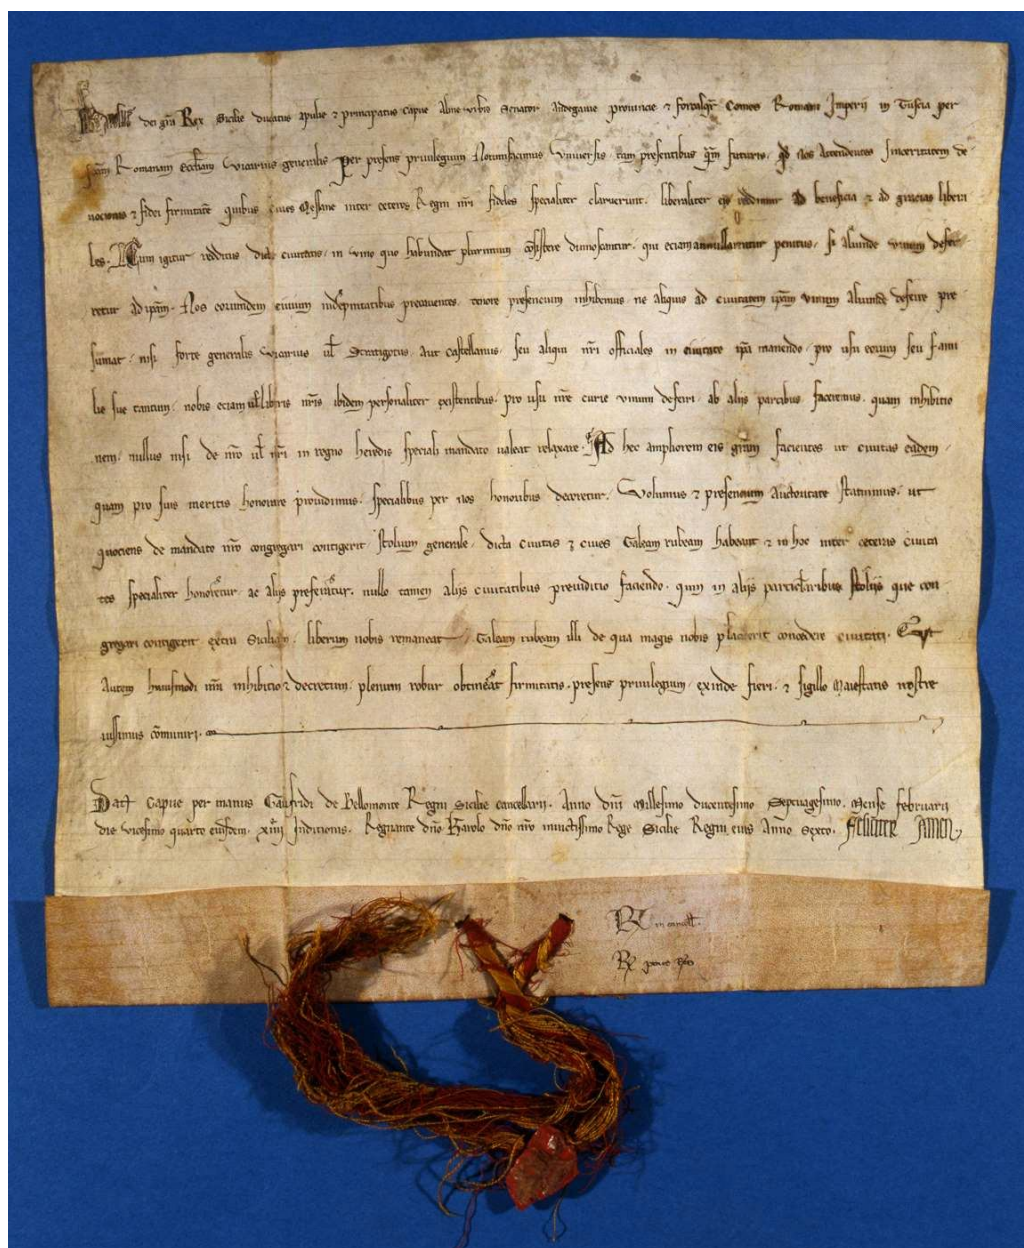 Karolus dei gra Rex Sicilie ducatus Apulie et principatus Capue Alme urbis Senator Andegavie provincie et forcalqr Comes Romani Imperii in Tuscia per
scam Romanam Eccliam Vicarius generalis Per presens privilegium Notum facimus Universis tam presentibus qm futuris. qd Nos Attendentes sinceritatem de
vocionis et fidei firmitate quibus Cives Messane inter ceteros Regni nri fideles specialiter claruerunt. liberaliter eis reddimur ad beneficia et ad gracias liberi
les. Cum igitur redditus dicte civitatis in vino quo habundat plurimum consistere dinoscantur. qui eciam annullarentur penitus. si aliunde vinum defer
retur ad ipam. Nos eorumdem civium indepnitatibus precaventes tenore presencium inhibemus ne aliquis ad civitatem ipam vinum aliunde deferre pre
sumat. nisi forte generalis vicarius ul Stratigotus. aut castellanus. seu aliqui nri officiales in civitate ipa manendo. pro usu eorum seu fami
lie sue tantum. nobis eciam ul liberis nris ibidem personaliter existentibus. pro usu nre curie vinum deferri. ab aliis partibus faceremus. quam inhibitio
nem. nullus nisi de nro ul nri in regno heredis speciali mandato valeat relaxare. Ad hec ampliorem eis gram facientes ut civitas eadem.
quam pro suis meritis honorare providimus. specialibus per nos honoribus decoretur. Volumus et presencium Auctoritate statuimus. ut
quociens de mandato nro congregari contigerit stolium generale. dicta civitas et cives Galeam rubeam habeant et in hoc inter ceteras civita
tes specialiter honoretur. ac aliis preferatur. nullo tamen aliis civitatibus preiudicio faciendo. quin in aliis particlaribus stoliis que con
gregari contigerit extra Siciliam. liberum nobis remaneat. Galeam rubeam illi de qua magis nobis placuerit concedere civitati. Ut
Autem huiusmodi nra inhibitio et decretum. plenum robur obtineat firmitatis. presens privilegium. exinde fieri. et sigillo Maiestatis nostre
iussimus comuniri.
Dat Capue per manus Gaufridi de Bellomonte Regni Sicilie cancellarii. Anno dni Millesimo ducentesimo Septuagesimo. Mense februarii
die vicesimo quarto eiusdem. xiiij Inditionis. Regnante dno Karolo dno nro invictissimo Rege Sicilie Regni eius Anno Sexto. feliciter Amen
Rx in cancell.
Rx penes